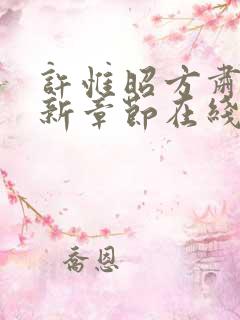 許惟昭方肅
新章節在綫
喬恩